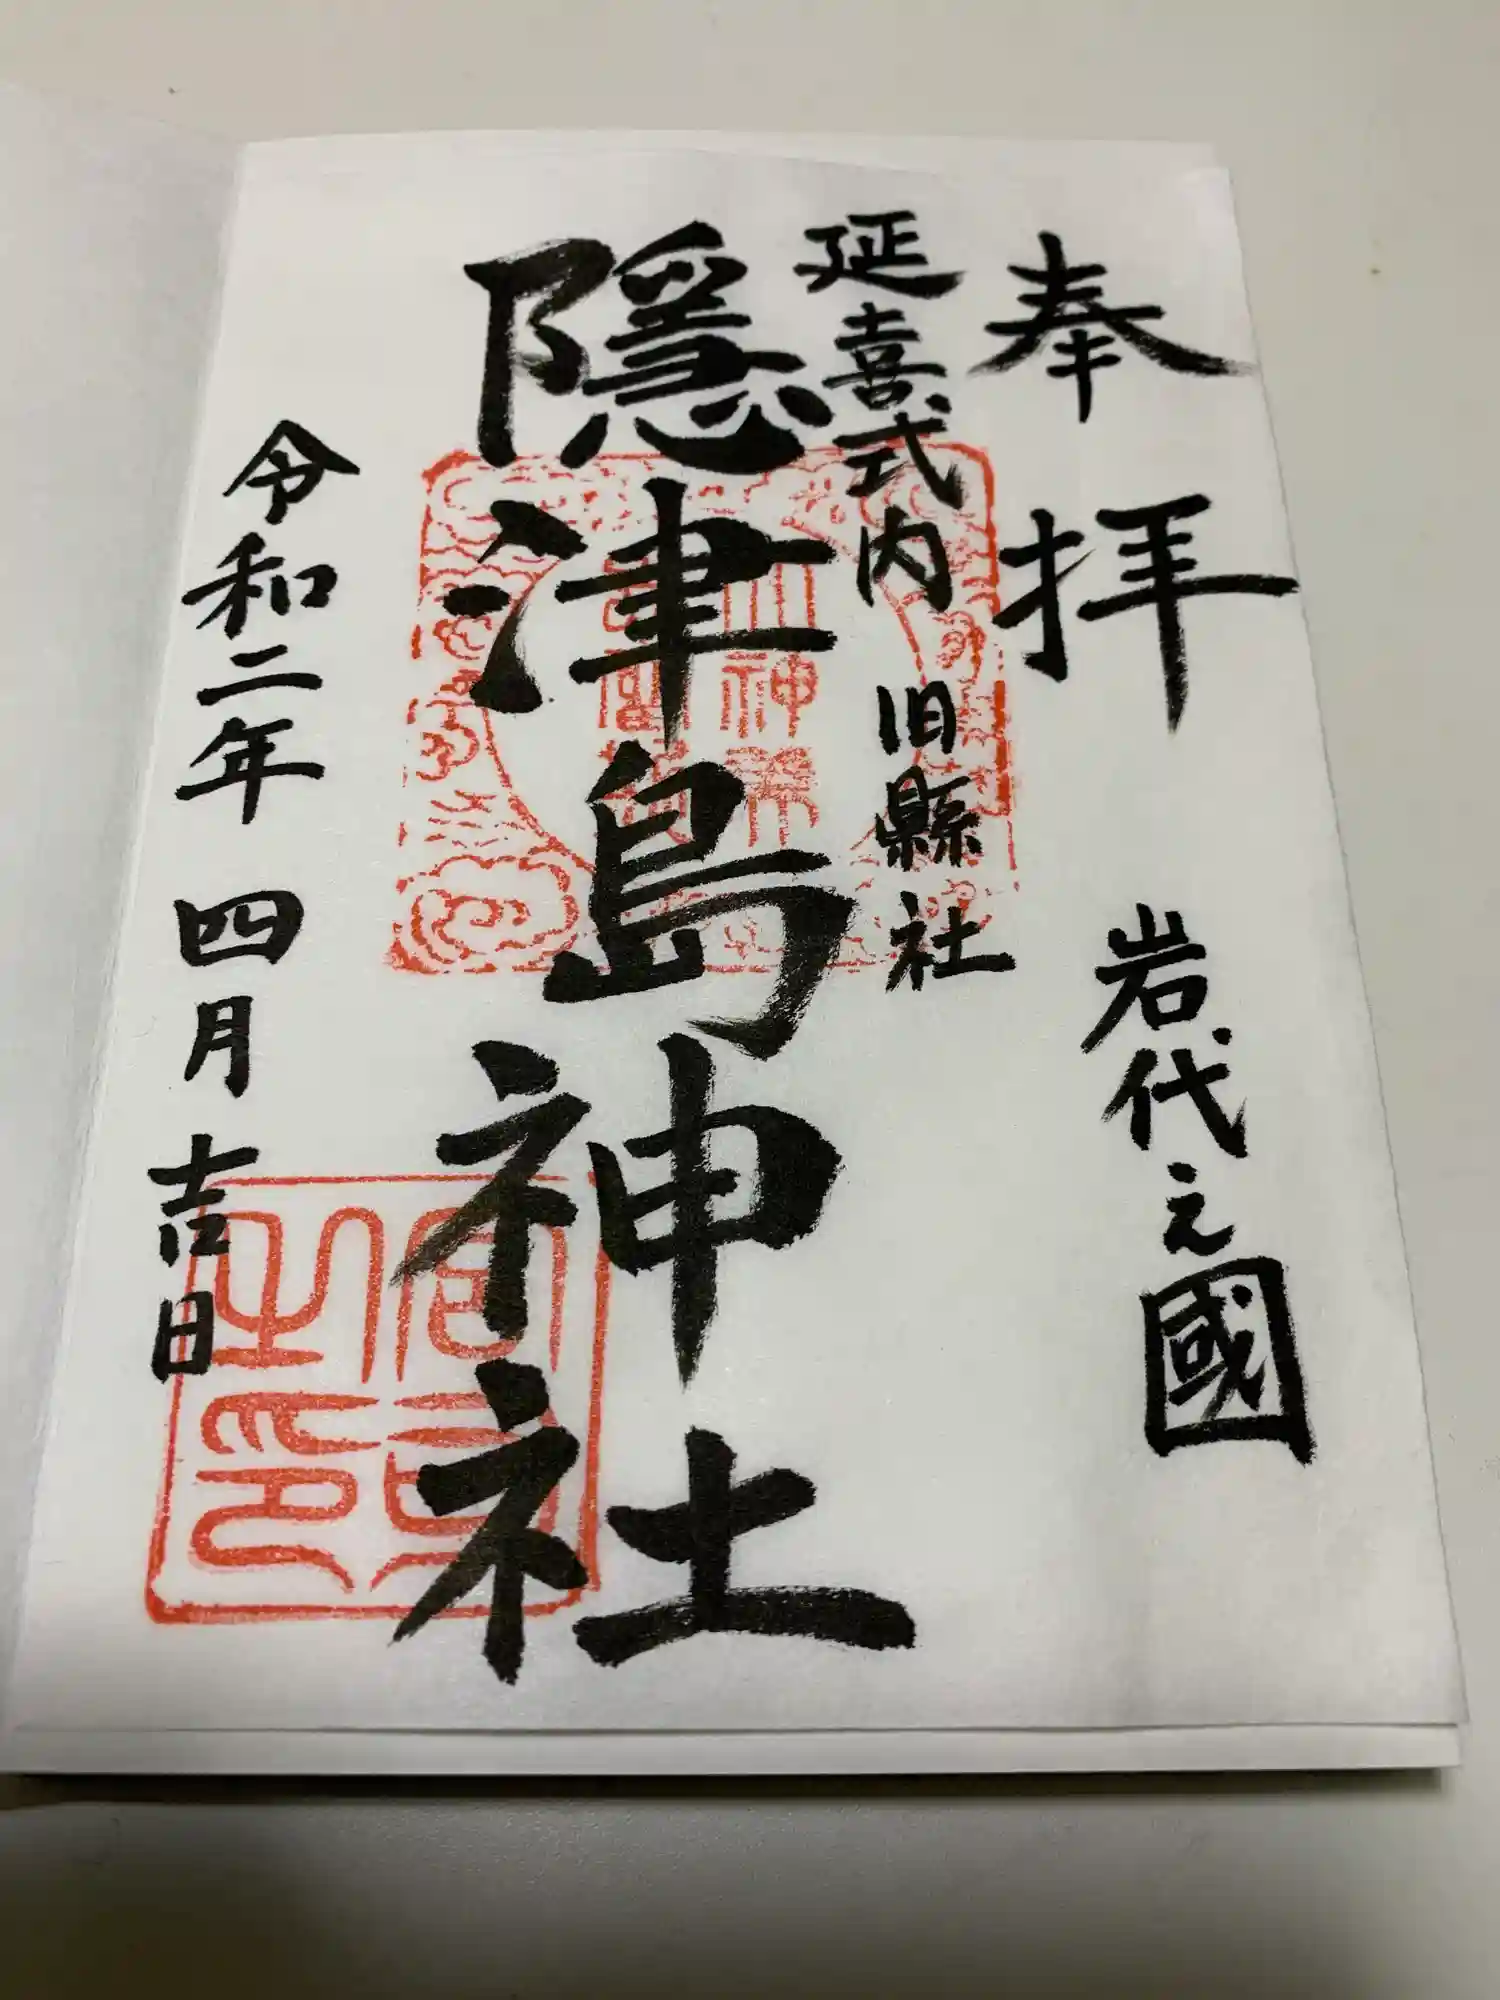 奉拝
岩代之國
延喜式内 旧縣社
隱津島神社
令和二年 四月 吉日